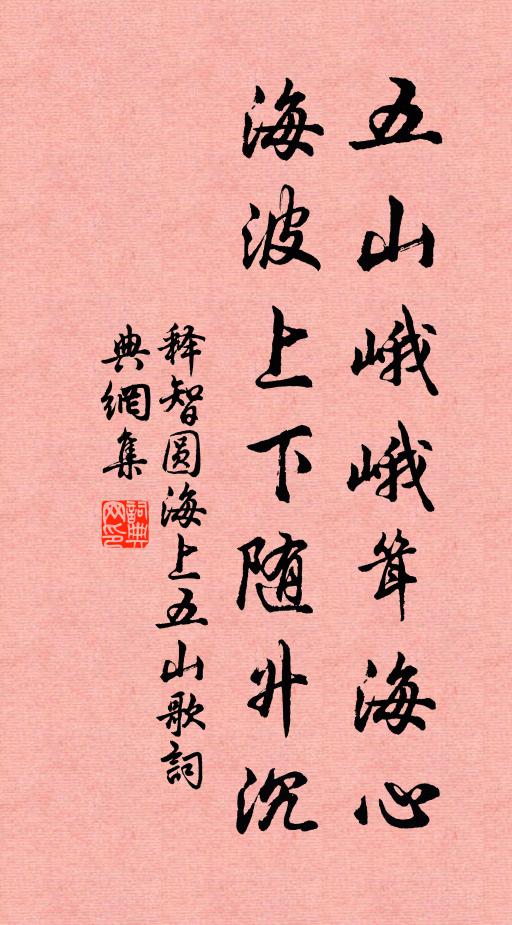 五山峨峨耸海心
海波上下随升沉
释智圆海上五山歌詞
典網集
詞典网印